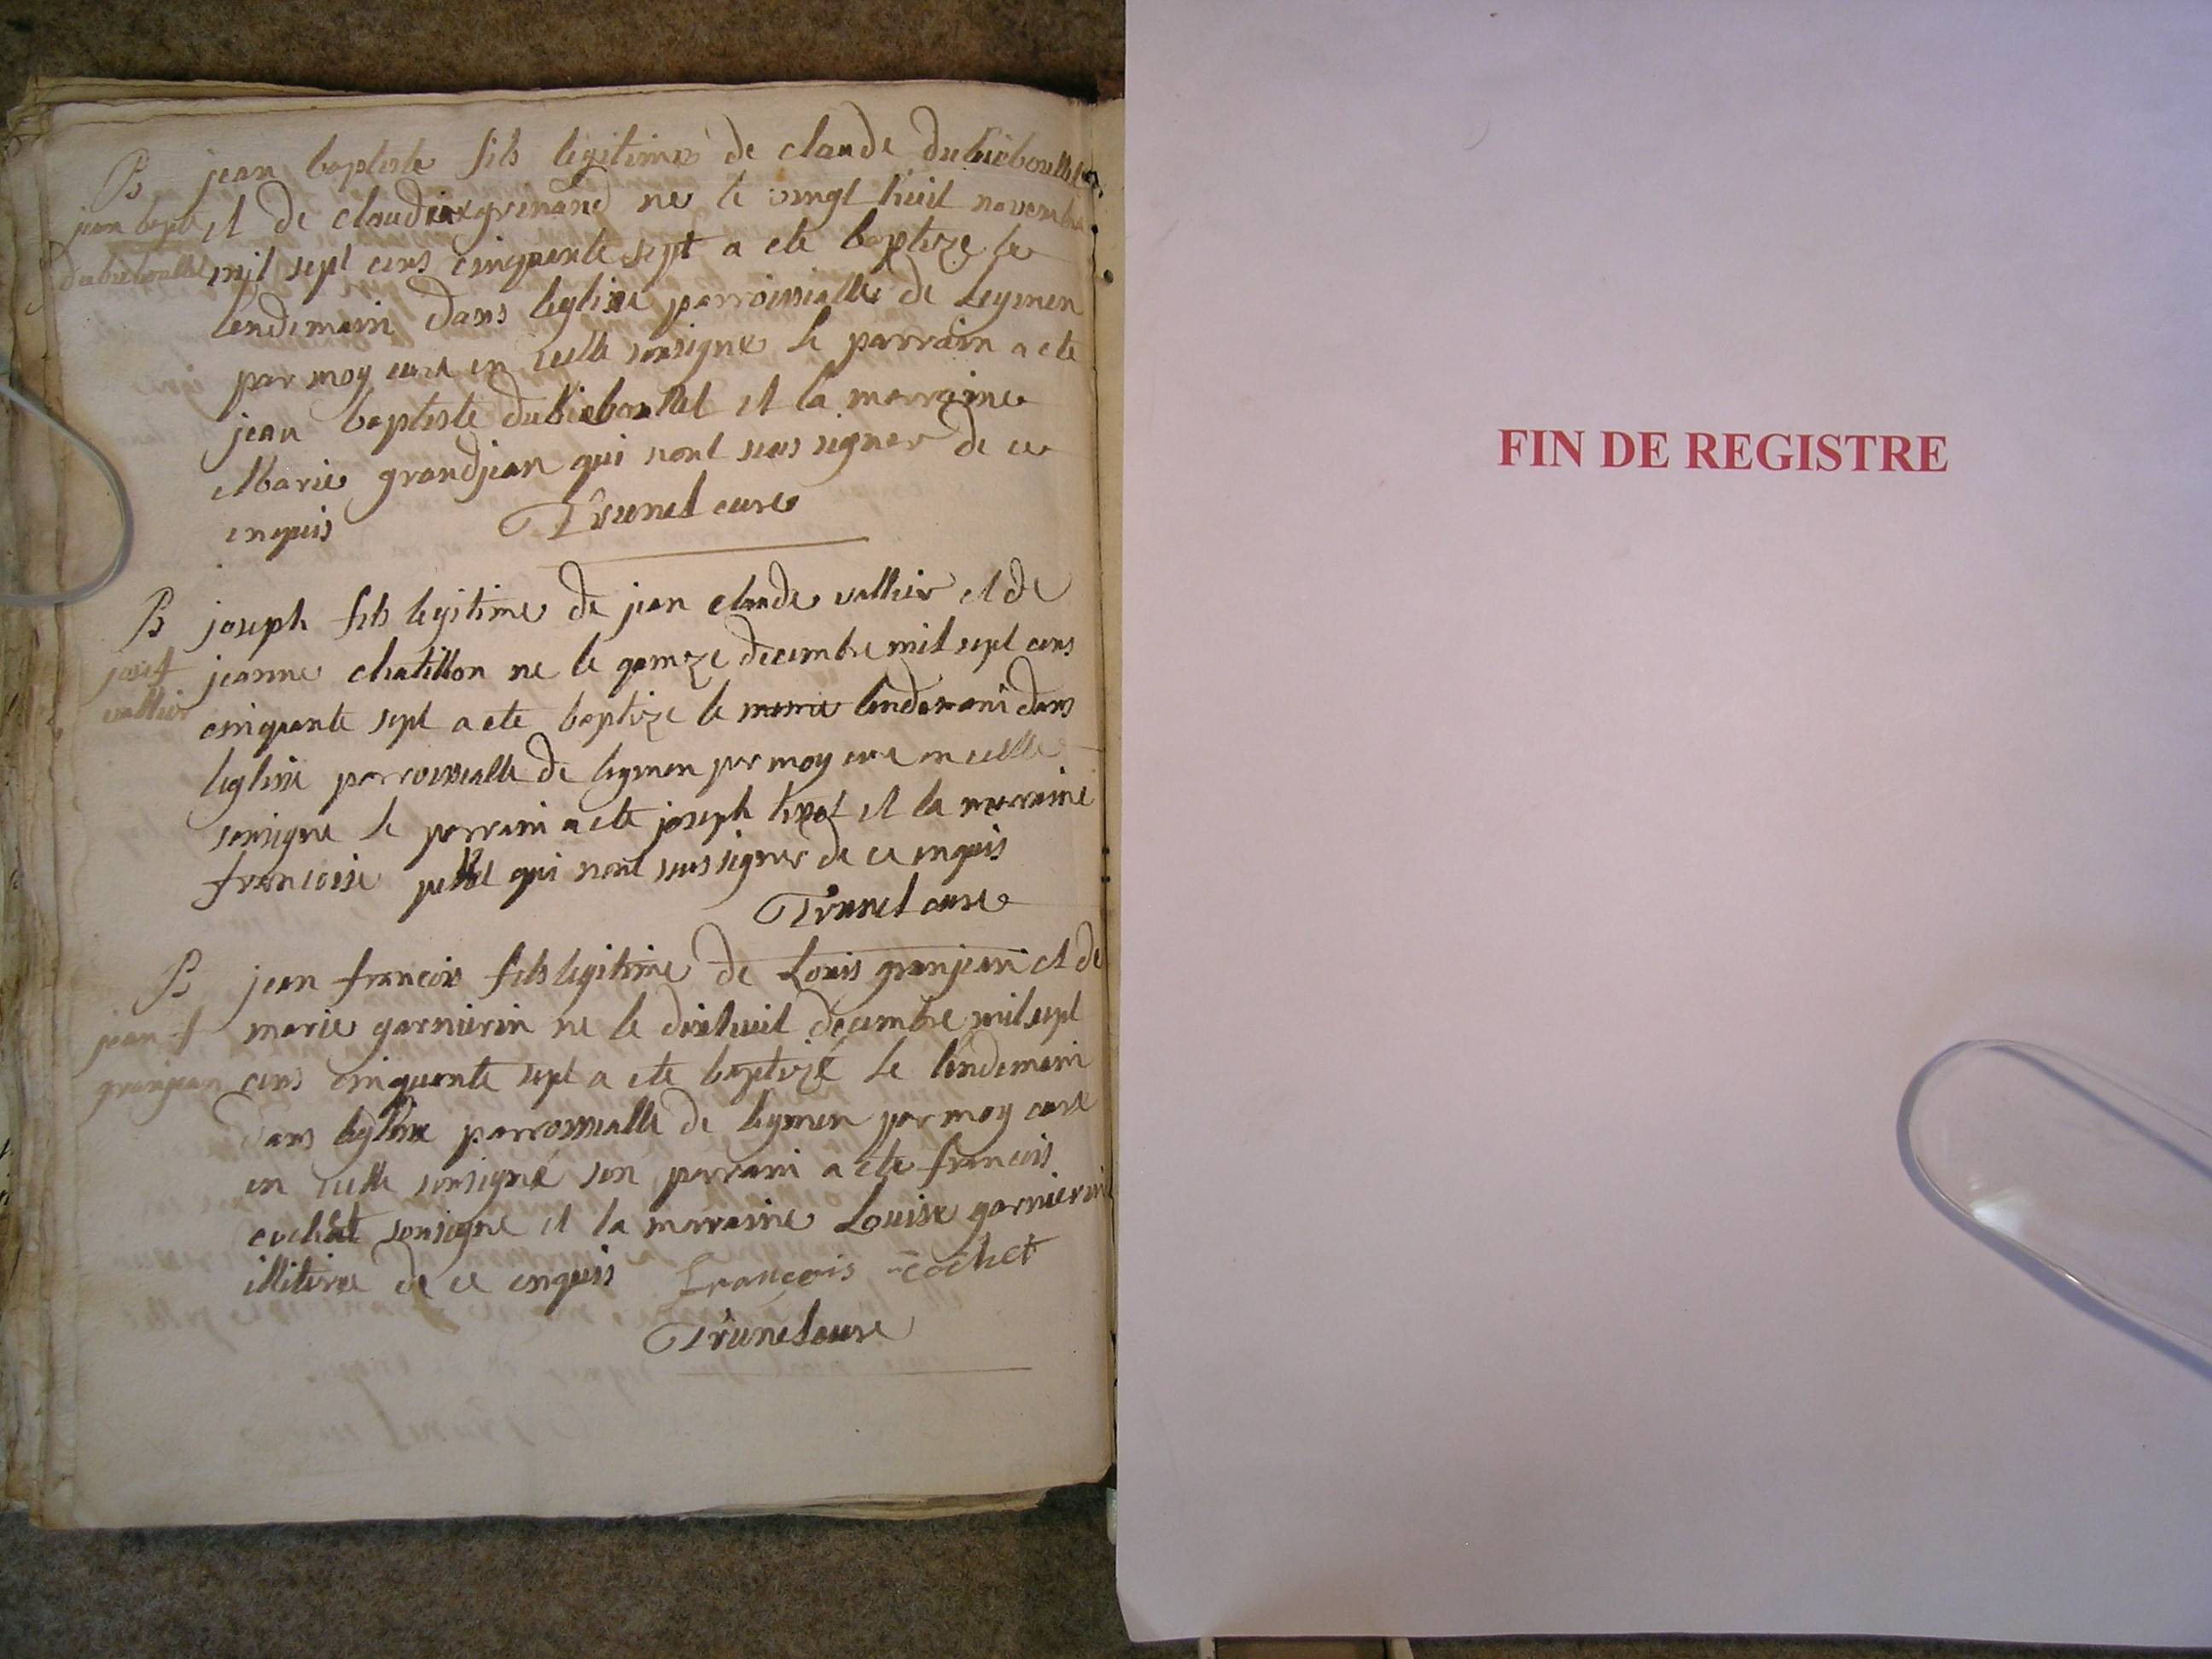 B jean baptiste fils legitime de claude dubieboullet
jean bapte et de claudine grenand ne le vingt huit novembre
dubieboullet mil sept cens cinquante sept a ete baptize le
lendemain dans leglise parroissialle de Leymen
par moy curé en icelle sousigne le parrain a ete
jean baptiste dubieboullet et la marraine
Marie grandjean qui nont scus signer de ce
enquis Trunel curé
B joseph fils legitime de jean claude vallier et de
josef jeanne chatillon ne le quinze decembre mil sept cens
vallier cinquante sept a ete baptize le lendemain dans
leglise parroissialle de leymen par moy curé en icelle
sousigne le parrain a ete joseph et la marraine
francoise qui nont scus signer de ce enquis
Trunel curé
B jean francois fils legitime de Louis granjean et de
jean f marie garnierin ne le dixhuit decembre mil sept
granjean cens cinquante sept a ete baptizé le lendemain
dans leglise parroissialle de leymen par moy curé
en icelle sousigné son parrain a ete francois
cochet sousigne et la marraine Louise garnierin
illiterée de ce enquis François cochet
Trunel curé
FIN DE REGISTRE